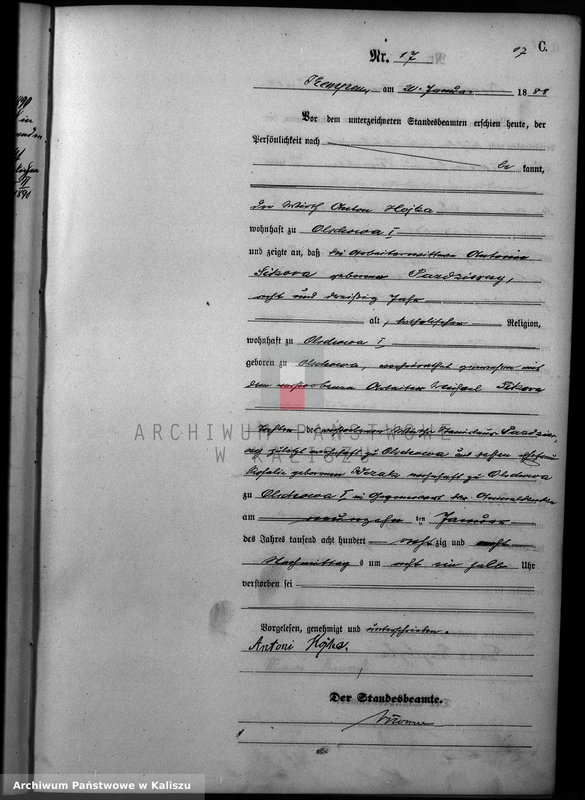 C.
Nr. 17
17
Kempen, am 20. Januar 1888
Vor dem unterzeichneten Standesbeamten erschien heute, der
Persönlichkeit nach
be kannt,
der Wirth Anton Hojka
wohnhaft zu Olszowa I
und zeigte an, daß die Arbeiterwittwe Antonie
Sikora geborene Pazdzierny,
acht und dreißig Jahr
alt, katholischer Religion,
wohnhaft zu Olszowa I
geboren zu Olszowa, verheirathet gewesen mit
dem verstorbenen Arbeiter Michael Sikora
Tochter des verstorbenen Wirths Stanislaus Pazdzier-
ny zuletzt wohnhaft zu Olszowa und dessen Ehefrau
Rosalie geborenen wohnhaft zu Olszowa
zu Olszowa I in Gegenwart des
am neunzehn ten Januar
des Jahres tausend acht hundert acht zig und acht
Nachmittag s um acht ein halb Uhr
verstorben sei
Vorgelesen, genehmigt und unterschrieben.
Antoni Hojka.
Der Standesbeamte.
ARCHIWUM PAŃSTWOWE
W KALISZU
Archiwum Państwowe w Kaliszu